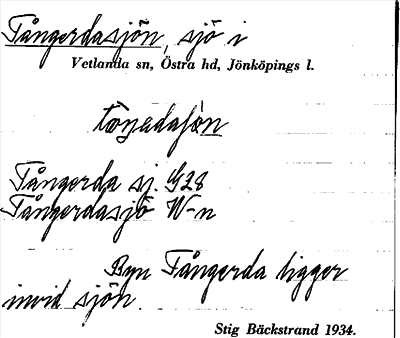 Tångerdasjön, sjö i
Vetlanda sn, Östra hd, Jönköpings l.
Tångerda sj. G28
Tångerdasjö W-n
Byn Tångerda ligger
invid sjön.
Stig Bäckstrand 1934.